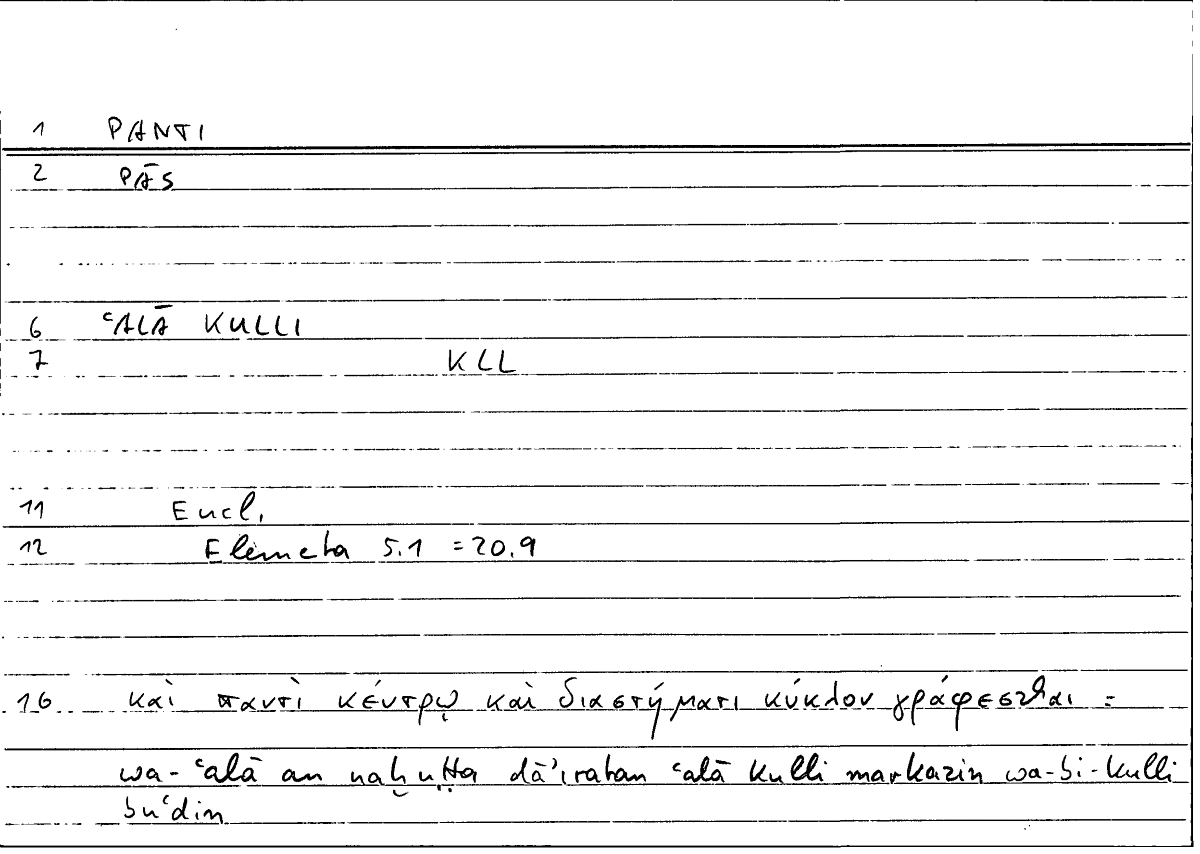 1 PANTI
2 PĀS
6 ʿALĀ KULLI
7 KLL
11 Eucl.
12 Elemeta 5.1 = 20.9
16 καὶ παντὶ κέντρῳ καὶ διαστήματι κύκλον γράφεσθαι =
wa-ʿalā an naḫuṭṭa dāʾiratan ʿalā kulli markazin wa-bi-kulli
buʿdin